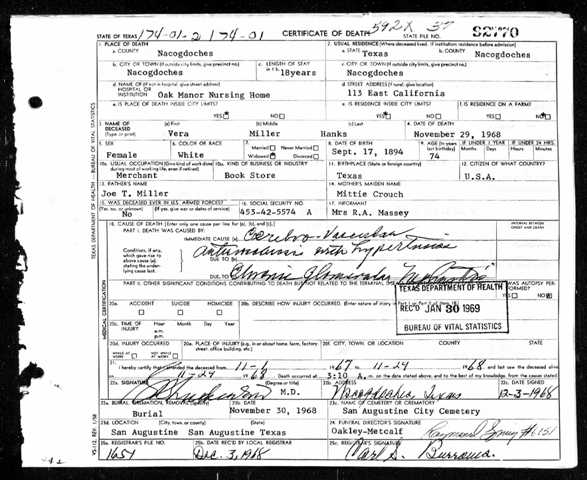 174-01-2 174-01
592X 37
STATE OF TEXAS CERTIFICATE OF DEATH STATE FILE NO. 82770
1. PLACE OF DEATH 2. USUAL RESIDENCE (Where deceased lived. If institution: residence before admission)
a. COUNTY Nacogdoches a. STATE Texas b. COUNTY Nacogdoches
b. CITY OR TOWN (If outside city limits, give precinct no.) c. LENGTH OF STAY c. CITY OR TOWN (If outside city limits, give precinct no.)
Nacogdoches 18years Nacogdoches
d. NAME OF (If not in hospital, give street address) d. STREET ADDRESS (If rural, give location)
HOSPITAL OR INSTITUTION Oak Manor Nursing Home 113 East California
e. IS PLACE OF DEATH INSIDE CITY LIMITS? e. IS RESIDENCE INSIDE CITY LIMITS? f. IS RESIDENCE ON A FARM?
YES NO YES NO YES NO
3. NAME OF DECEASED (Type or print) (a) First (b) Middle (c) Last 4. DATE OF DEATH
Vera Miller Hanks November 29, 1968
5. SEX 6. COLOR OR RACE 7. Married Never Married 8. DATE OF BIRTH 9. AGE (In years last birthday) IF UNDER 1 YEAR IF UNDER 24 HRS.
Female White Widowed Divorced Sept. 17, 1894 74 Months Days Hours Min.
10a. USUAL OCCUPATION (Give kind of work done during most of working life, even if retired) 10b. KIND OF BUSINESS OR INDUSTRY 11. BIRTHPLACE (State or foreign country) 12. CITIZEN OF WHAT COUNTRY?
Merchant Book Store Texas U.S.A.
13. FATHER'S NAME 14. MOTHER'S MAIDEN NAME
Joe T. Miller Mittie Crouch
15. WAS DECEASED EVER IN U.S. ARMED FORCES? 16. SOCIAL SECURITY NO. 17. INFORMANT
(Yes, no, or unknown) (If yes, give war or dates of service)
No 455-42-5574 A Mrs R.A. Massey
18. CAUSE OF DEATH [Enter only one cause per line for (a), (b), and (c).] INTERVAL BETWEEN ONSET AND DEATH
PART I. DEATH WAS CAUSED BY:
IMMEDIATE CAUSE (a) Cerebro-Vascular
Conditions, if any, which gave rise to above cause (a) stating the underlying cause last. with hypertension
DUE TO
DUE TO Chronic Glomerular
PART II. OTHER SIGNIFICANT CONDITIONS CONTRIBUTING TO DEATH BUT NOT RELATED TO THE TERMINAL WAS AUTOPSY PERFORMED?
YES NO
TEXAS DEPARTMENT OF HEALTH
REC'D JAN 30 1969
BUREAU OF VITAL STATISTICS
20a. ACCIDENT SUICIDE HOMICIDE 20b. DESCRIBE HOW INJURY OCCURRED. (Enter nature of injury in Part I or Part II of item 18.)
20c. TIME OF INJURY Hour Month Day Year
a.m.
p.m.
20d. INJURY OCCURRED 20e. PLACE OF INJURY (e.g., in or about home, farm, factory, street, office building, etc.) 20f. CITY, TOWN, OR LOCATION COUNTY STATE
WHILE AT WORK NOT WHILE AT WORK
21. I hereby certify that I attended the deceased from 11-6 1967 to 11-29 1968 and last saw the deceased
1968 Death occurred at 3:10 A. m. on the date stated above; and to the best of my knowledge, from the causes stated
22a. SIGNATURE (Degree or title) 22b. ADDRESS 22c. DATE SIGNED
M.D. Nacogdoches, Texas 12-3-1968
23a. BURIAL, CREMATION, REMOVAL (Specify) 23b. DATE 23c. NAME OF CEMETERY OR CREMATORY
Burial November 30, 1968 San Augustine City Cemetery
23d. LOCATION (City, town, or county) (State) 24. FUNERAL DIRECTOR'S SIGNATURE
San Augustine San Augustine Texas Oakley-Metcalf
25a. REGISTRAR'S FILE NO. 25b. DATE REC'D BY LOCAL REGISTRAR 25c. REGISTRAR'S SIGNATURE
1654 Dec. 3, 1968 Carl S. Burrows
TEXAS DEPARTMENT OF HEALTH — BUREAU OF VITAL STATISTICS
MEDICAL CERTIFICATION
VS-112, REV. 1/58